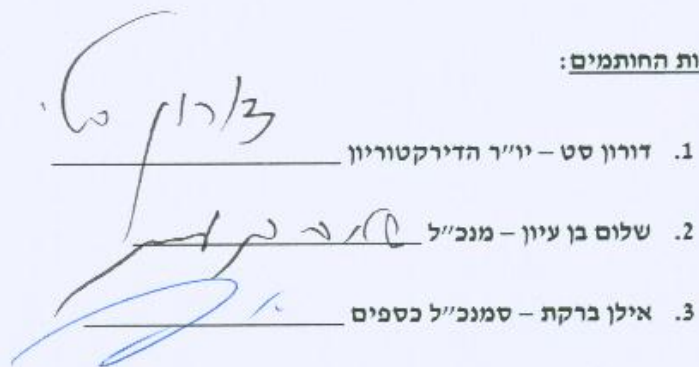 ות החותמים:
דורון סט
1. דורון סט – יו״ר הדירקטוריון
2. שלום בן עיון – מנכ״ל
3. אילן ברקת – סמנכ״ל כספים